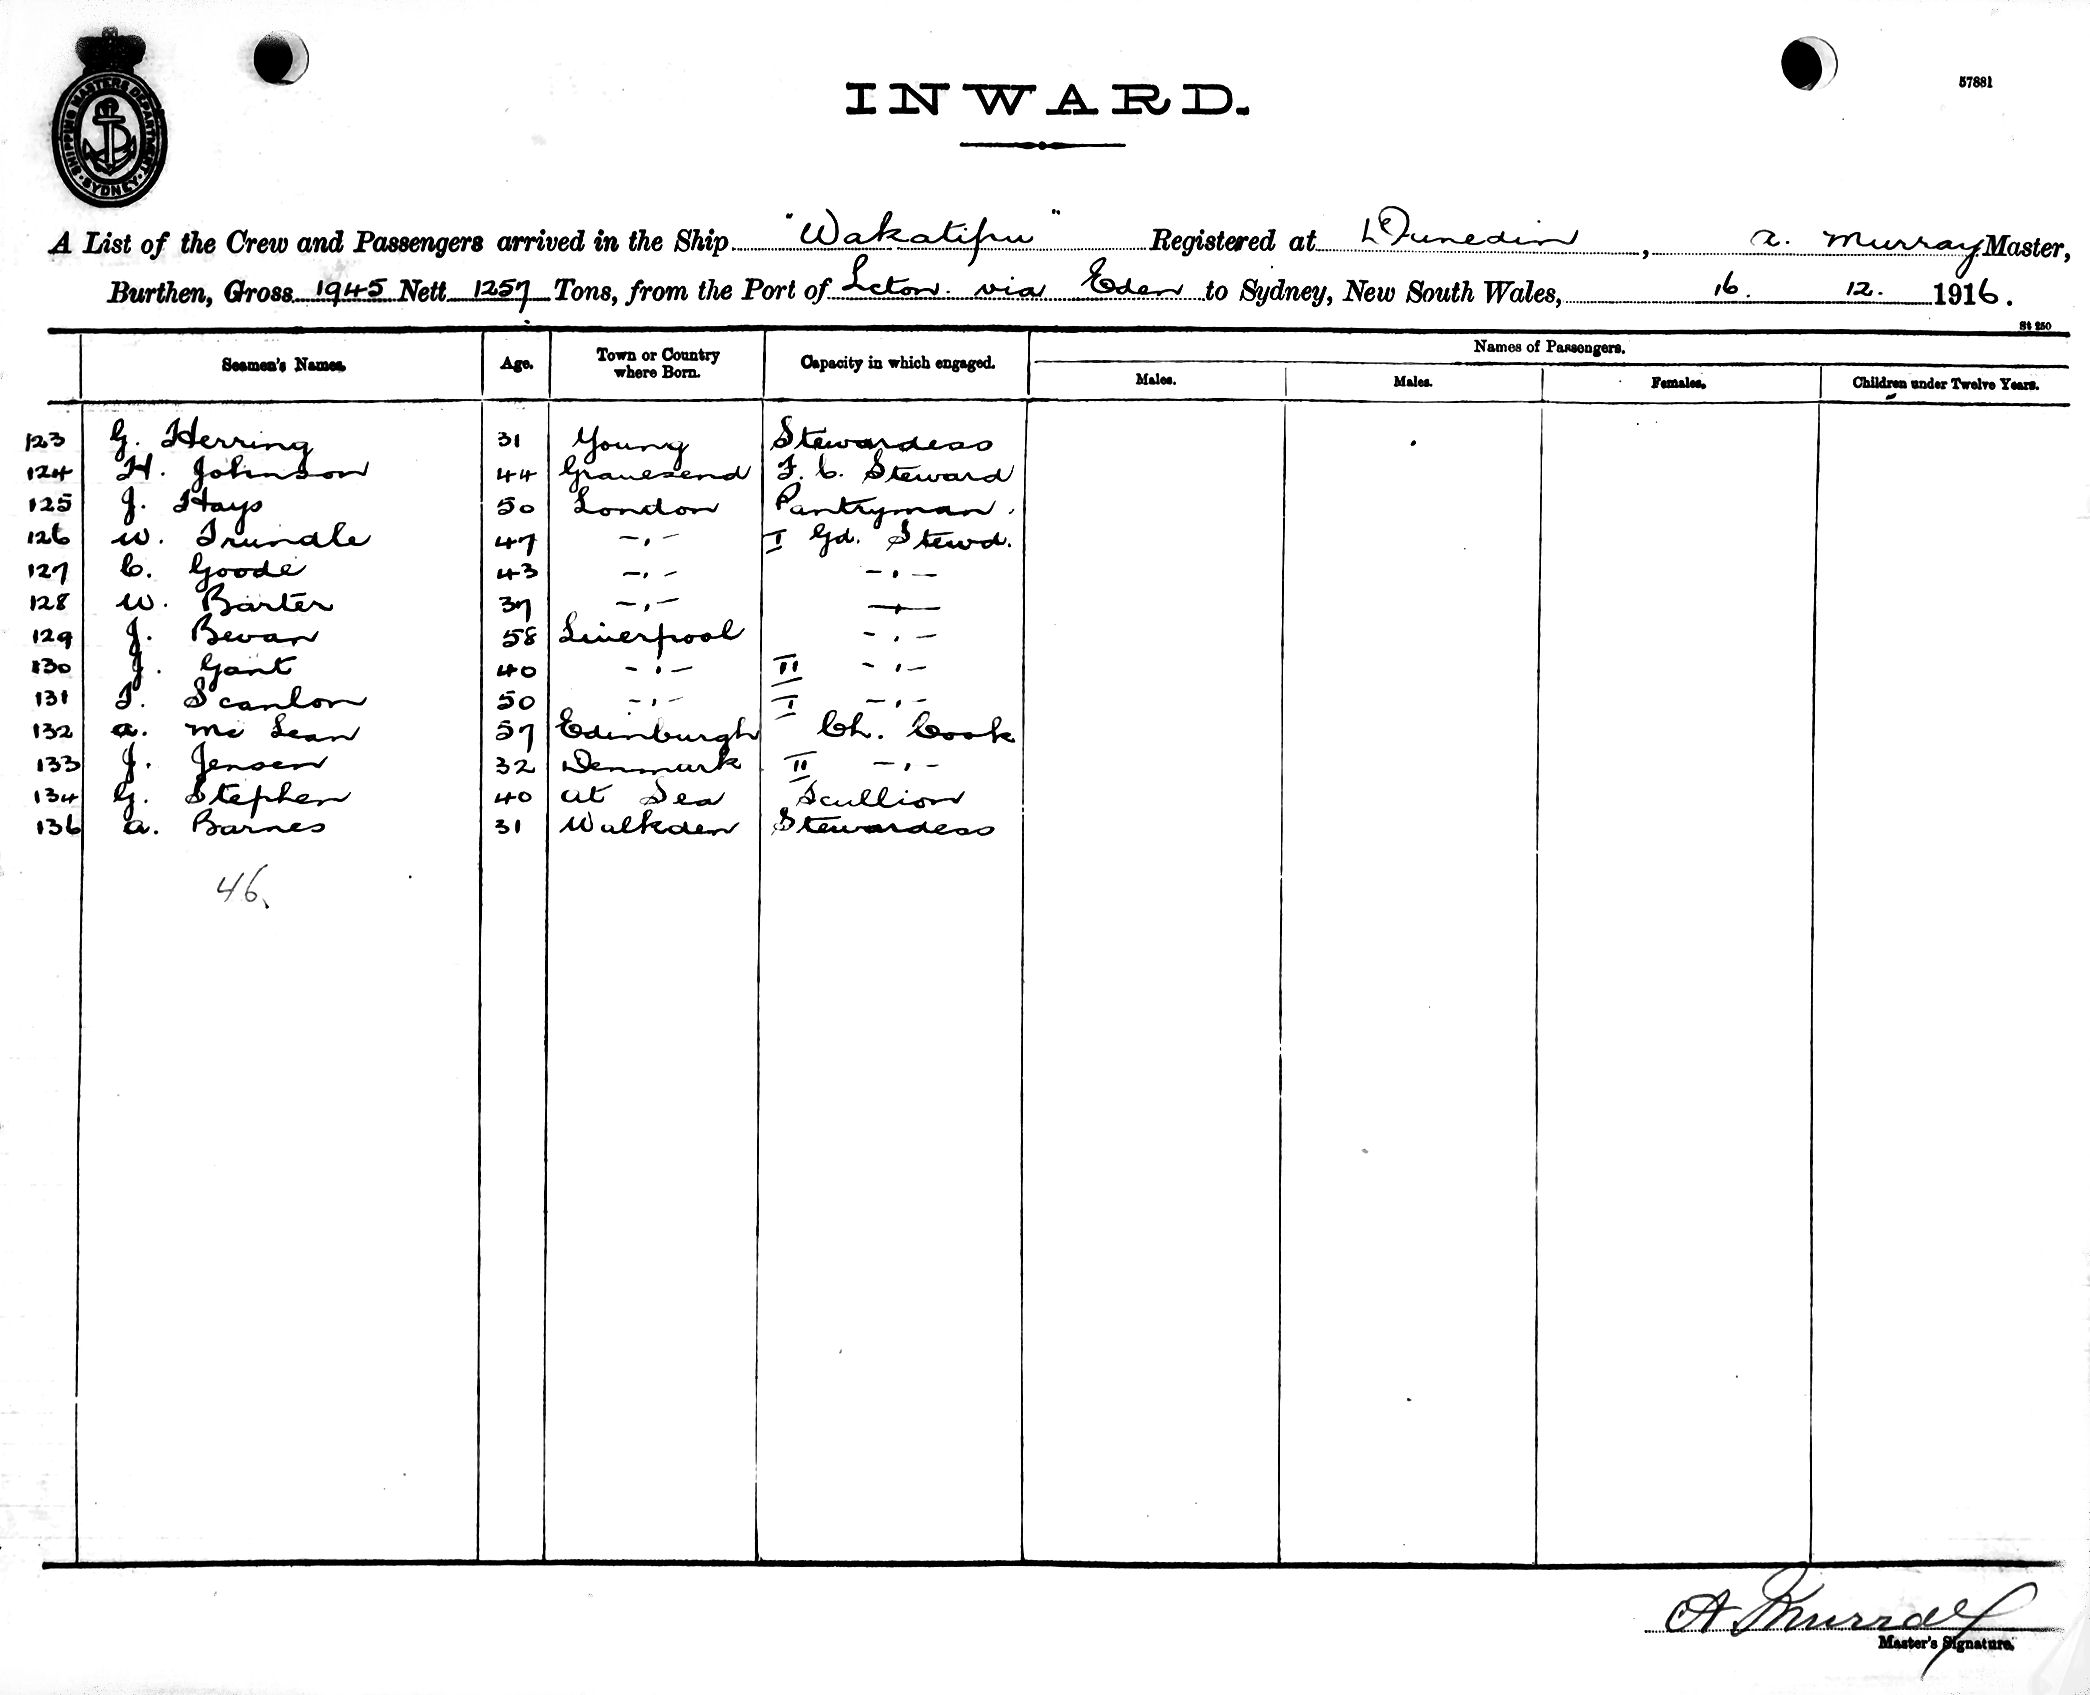 SHIPPING MASTERS DEPARTMENT · SYDNEY ·
57881
INWARD.
A List of the Crew and Passengers arrived in the Ship "Wakatipu" Registered at Dunedin, A. Murray Master,
Burthen, Gross 1945 Nett 1257 Tons, from the Port of Lcton. via Eden to Sydney, New South Wales, 16. 12. 1916.
St 250
Seamen's Names. Age. Town or Country where Born. Capacity in which engaged. Names of Passengers.
Males. Males. Females. Children under Twelve Years.
123 G. Herring 31 Young Stewardess
124 H. Johnson 44 Gravesend F. C. Steward
125 J. Hays 50 London Pantryman.
126 W. Trundle 47 -,- I Gd. Stewd.
127 C. Goode 43 -,- -,-
128 W. Barter 37 -,- -,-
129 J. Bevan 58 Liverpool -,-
130 J. Gant 40 -,- II -,-
131 T. Scanlon 50 -,- I -,-
132 A. McLean 57 Edinburgh Ch. Cook
133 J. Jensen 32 Denmark II -,-
134 G. Stephen 40 At Sea Scullion
136 A. Barnes 31 Walkden Stewardess
46
A Murray
Master's Signature.